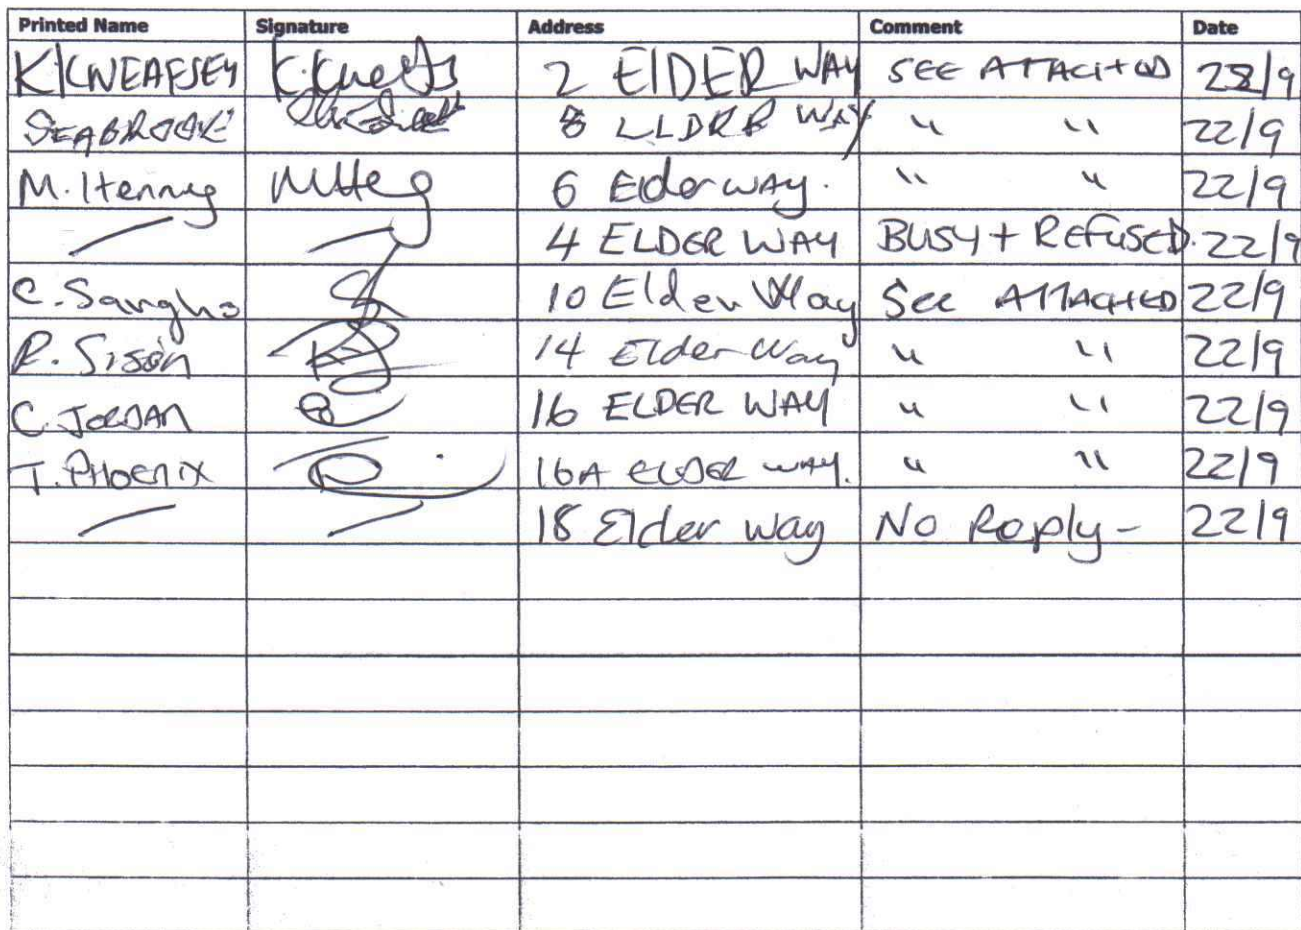 Printed Name Signature Address Comment Date
K KNEAFSEY 2 ElDER WAY SEE ATTACHED 22/9
SEABROOK 8 ELDER WAY " " 22/9
M. Henning 6 Elder WAY. " " 22/9
— — 4 ELDER WAY BUSY + REFUSED. 22/9
C. Sangha 10 Elder Way See ATTACHED 22/9
R. Sison 14 Elder Way " " 22/9
C. JORDAN 16 ELDER WAY " " 22/9
T. PHOENIX 16A ELDER WAY. " " 22/9
— — 18 Elder way No Reply - 22/9